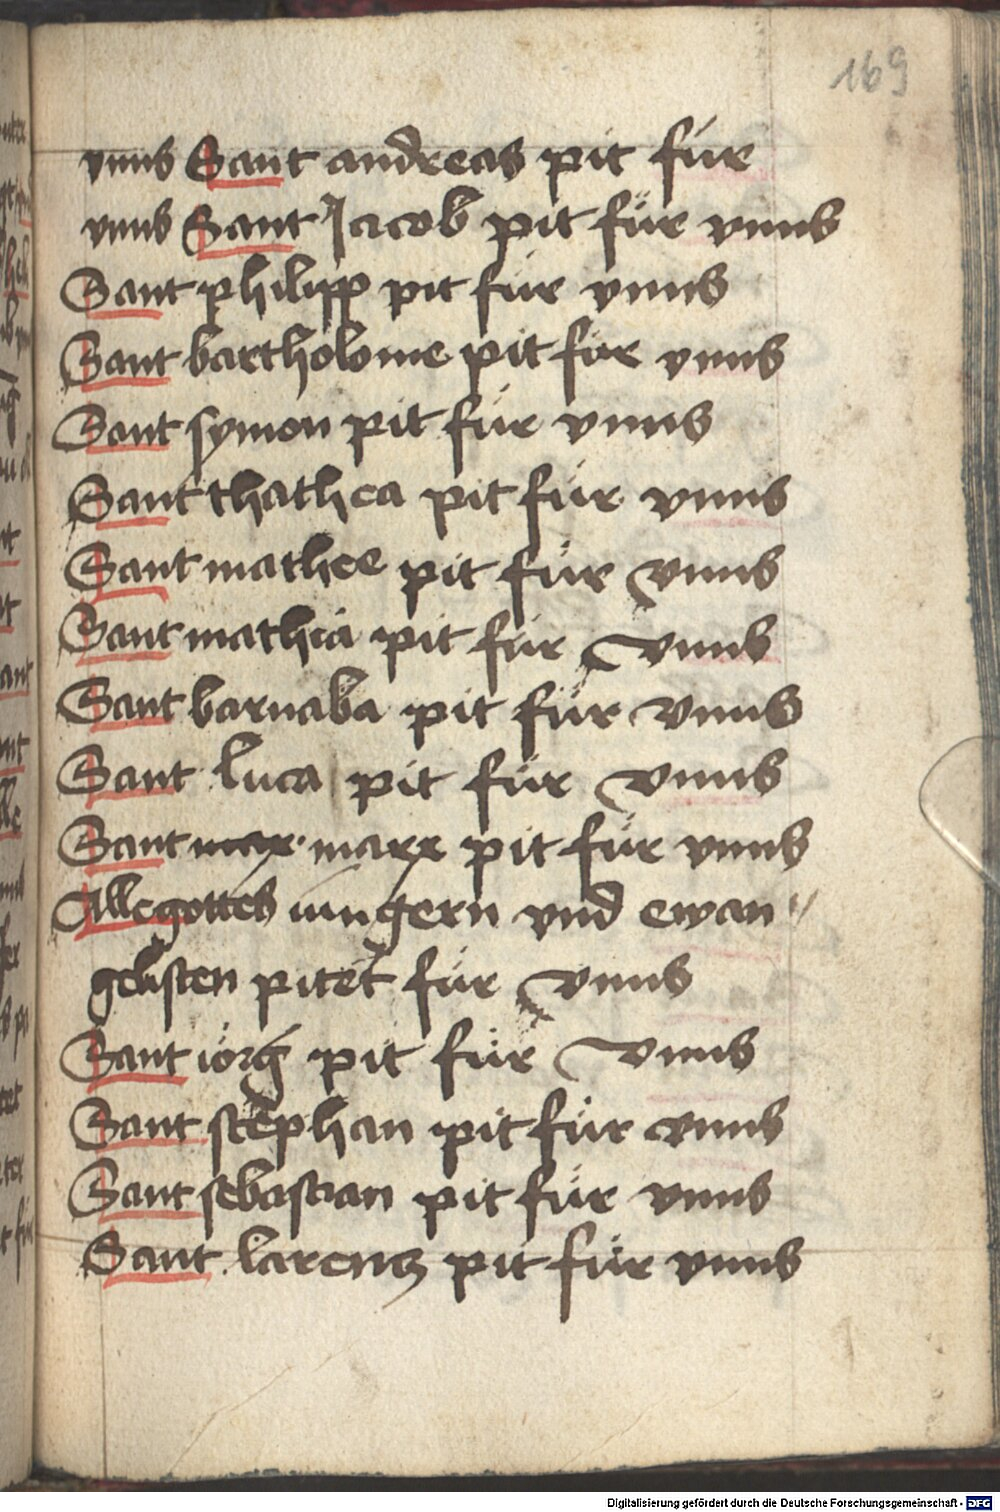 169
vnns Sant andreas pit für
vnns Sant Jacob pit für vnns
Sant philipp pit für vnns
Sant bartholome pit für vnns
Sant symon pit für vnns
Sant thathea pit für vnns
Sant mathee pit für vnns
Sant mathia pit für vnns
Sant barnaba pit für vnns
Sant luca pit für vnns
Sant marx pit für vnns
Alle gottes iüngern vnd ewan"
gelisten pitet für vnns
Sant iörg pit für vnns
Sant stephan pit für vnns
Sant sebastian pit für vnns
Sant larentz pit für vnns
Digitalisierung gefördert durch die Deutsche Forschungsgemeinschaft - DFG